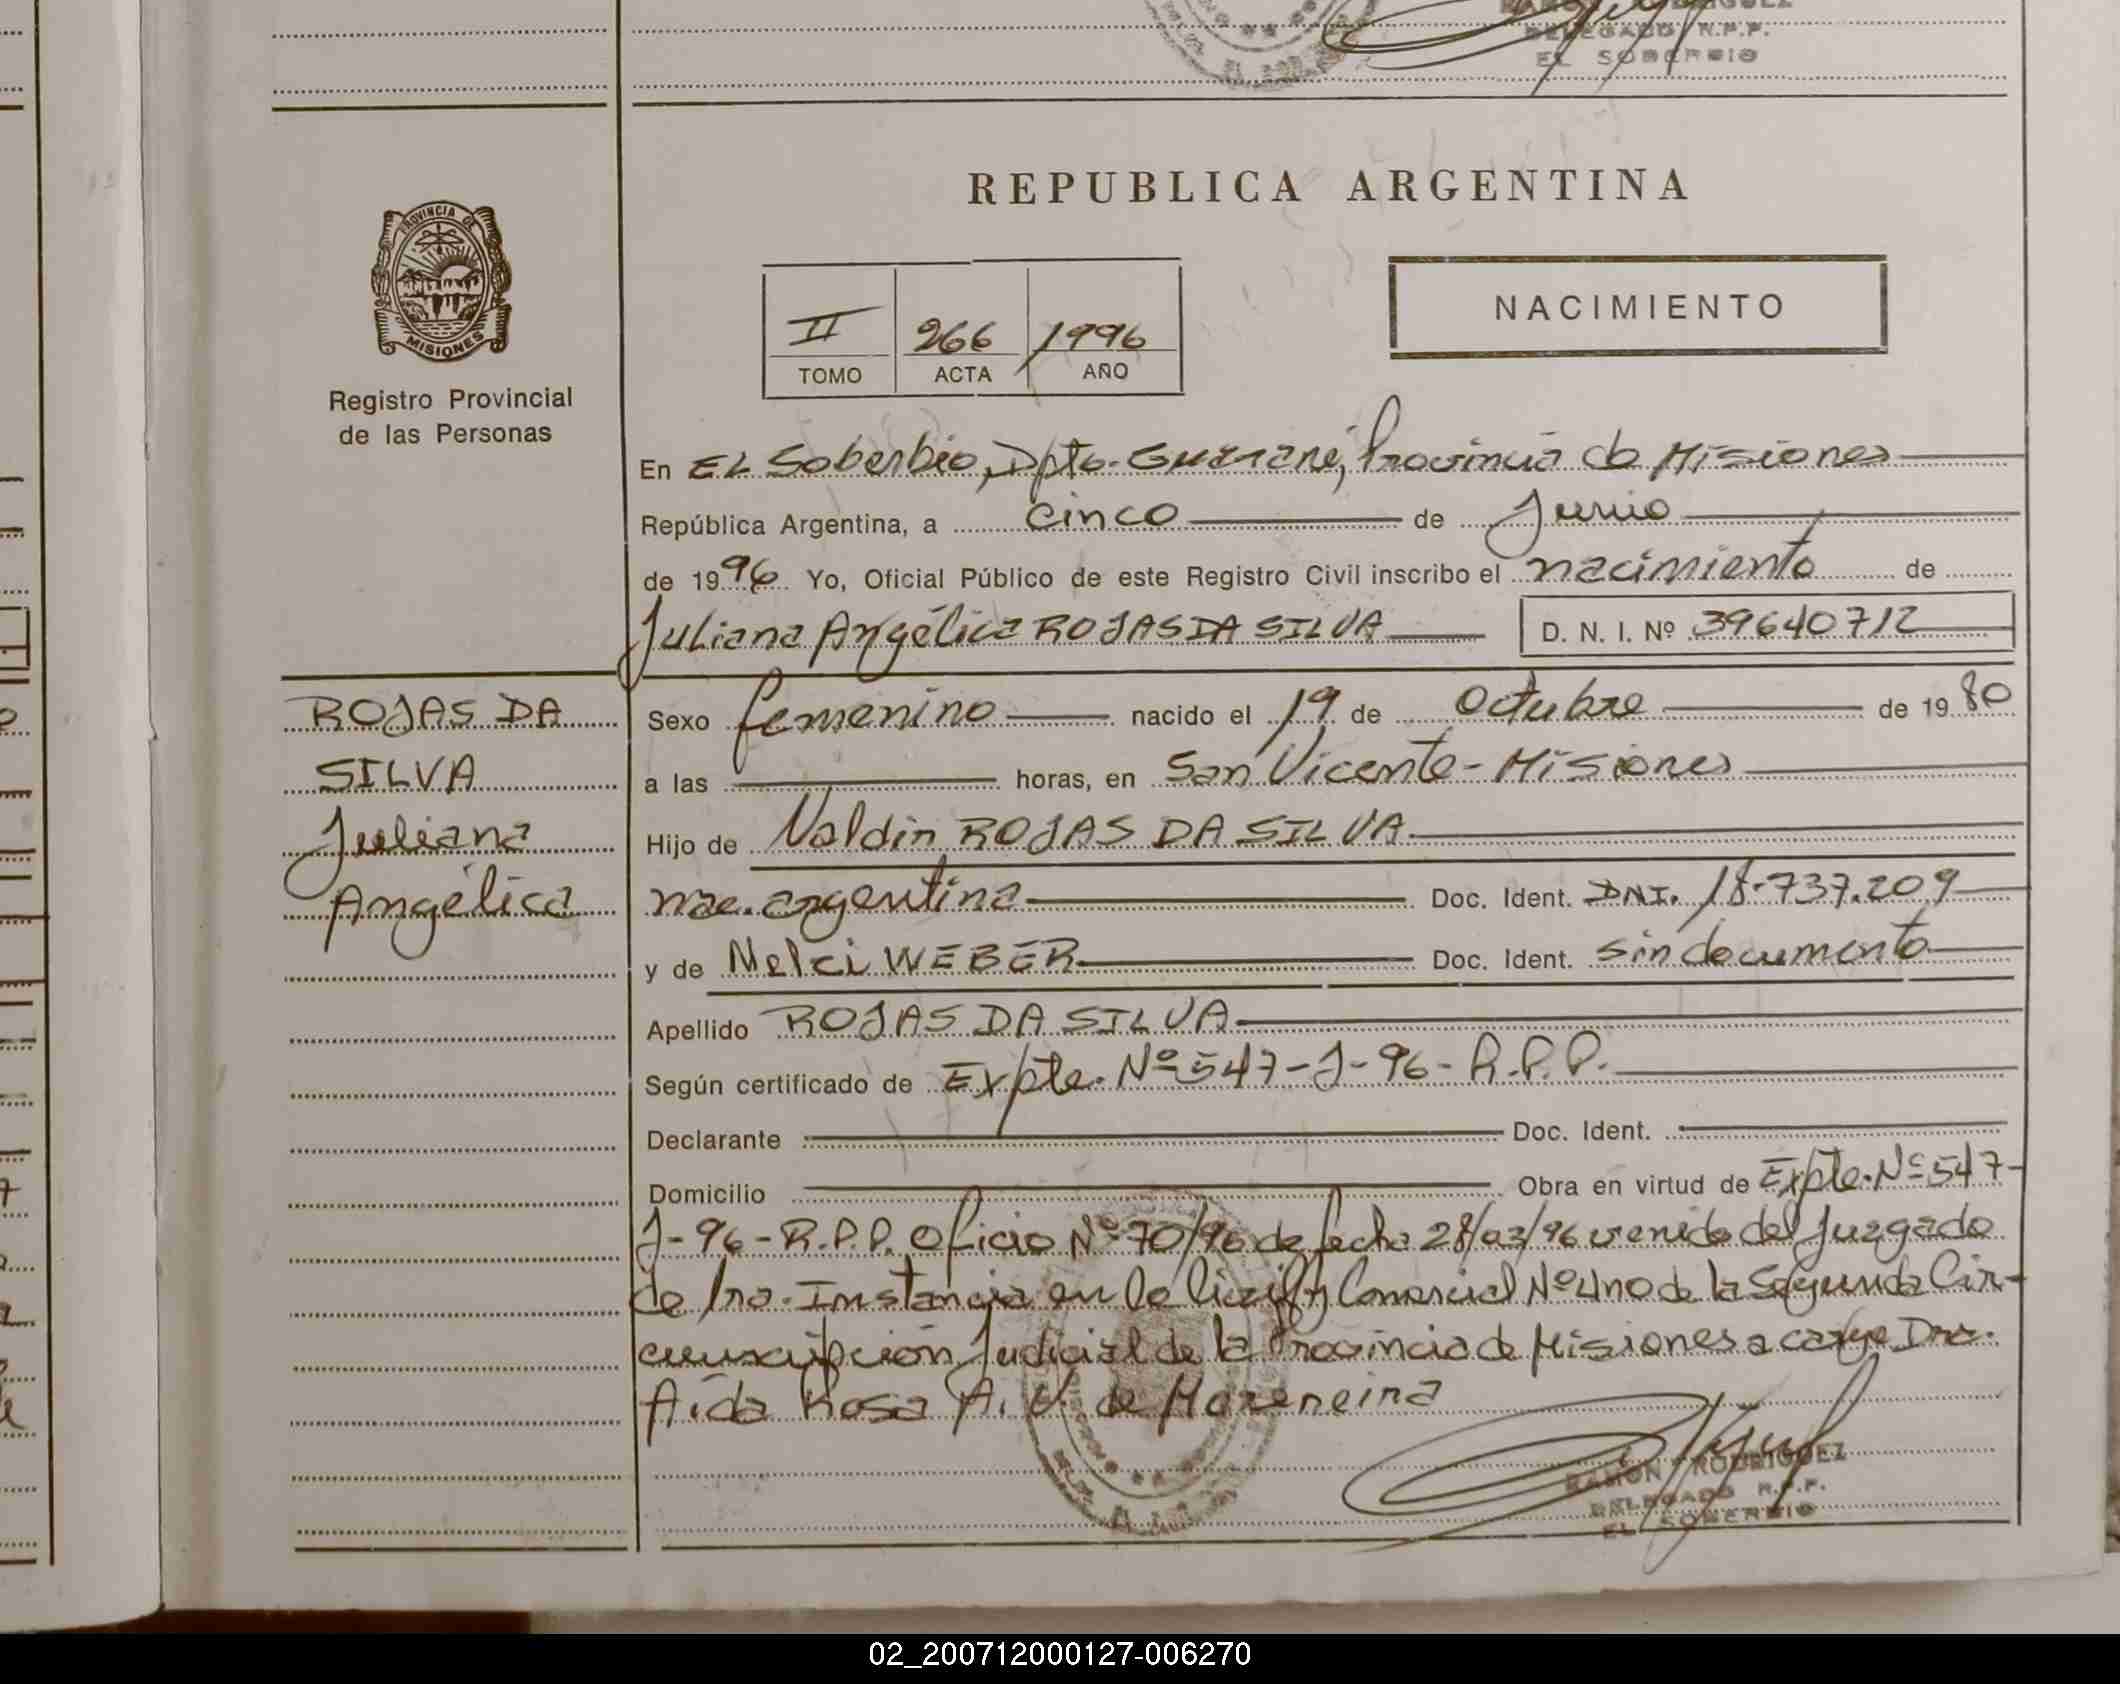 DELEGADO R.P.P.
EL SOBERBIO
REPUBLICA ARGENTINA
PROVINCIA DE
MISIONES
Registro Provincial
de las Personas
II 266 1996
TOMO ACTA AÑO
NACIMIENTO
En EL Soberbio, Dpto. Guaraní, Provincia de Misiones
República Argentina, a cinco de Junio
de 1996 Yo, Oficial Público de este Registro Civil inscribo el nacimiento de
Juliana Angélica ROJAS DA SILVA D. N. I. Nº 39640712
ROJAS DA
SILVA
Juliana
Angélica
Sexo femenino nacido el 19 de Octubre de 1980
a las horas, en San Vicente - Misiones
Hijo de Valdin ROJAS DA SILVA
nac. argentina Doc. Ident. DNI. 18.737.209
y de Nelci WEBER Doc. Ident. sin documento
Apellido ROJAS DA SILVA
Según certificado de Expte. Nº 547-J-96-R.P.P.
Declarante Doc. Ident.
Domicilio Obra en virtud de Expte. Nº 547-
J-96-R.P.P. Oficio Nº 70/96 de fecha 28/03/96 venido del Juzgado
de 1ra. Instancia en lo Civil y Comercial Nº Uno de la Segunda Cir-
cunscripción Judicial de la Provincia de Misiones a cargo Dra.
Aída Rosa A. V. de
RAMON RODRIGUEZ
DELEGADO R.P.P.
EL SOBERBIO
02_200712000127-006270